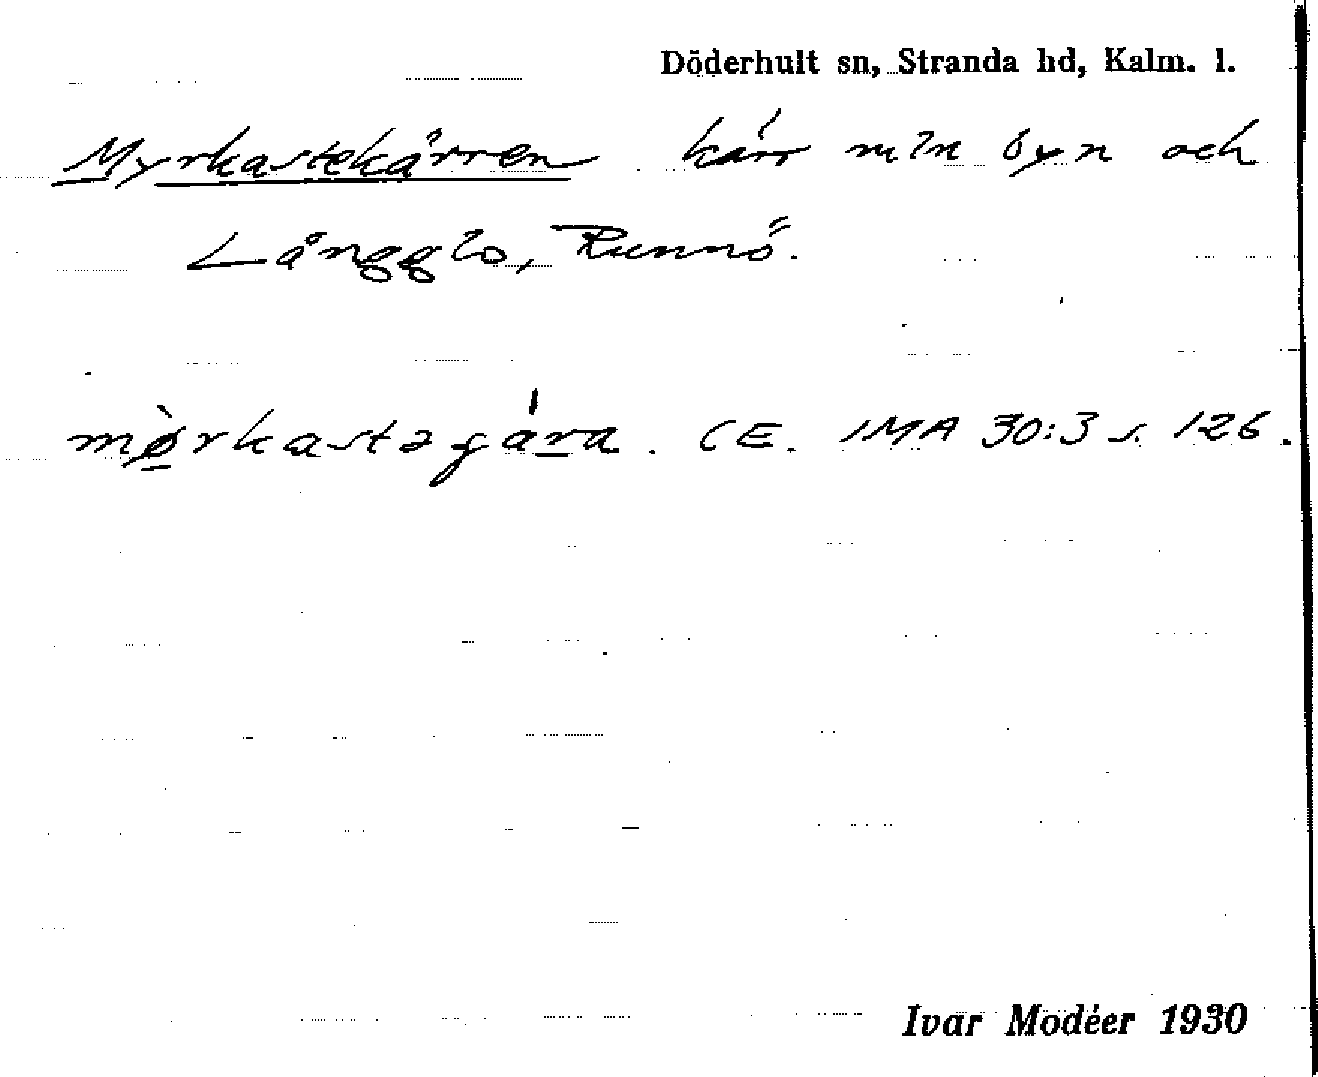 Döderhult sn, Stranda hd, Kalm. l.
Myrkastekärren kärr mln byn och
Långglo, Runnö.
mørkastəgára. CE. IMA 30:3 s. 126.
Ivar Modéer 1930